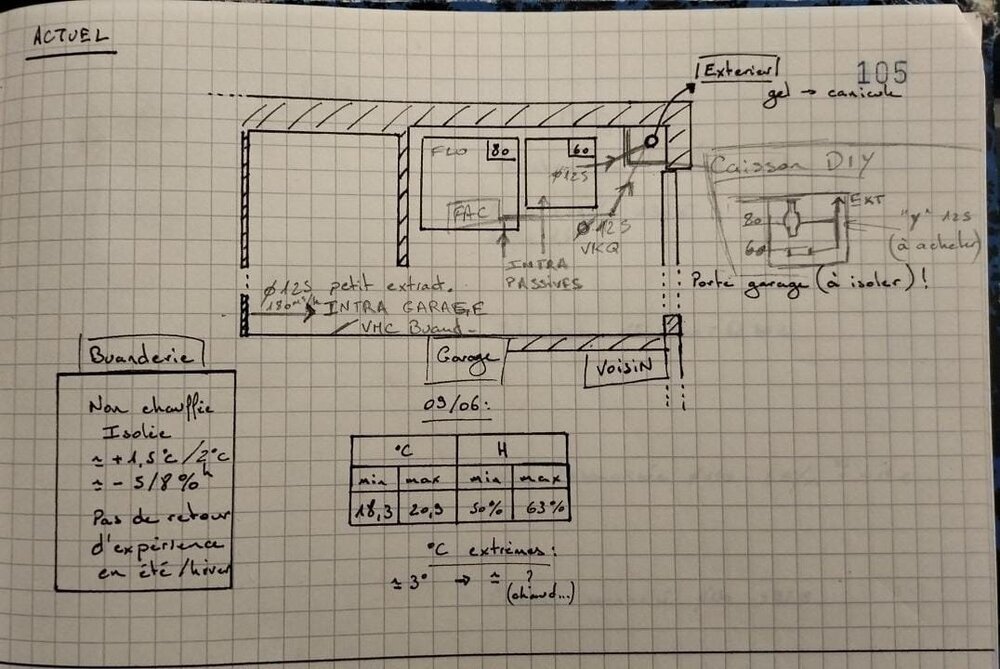 ACTUEL
Exterieur
105
gel → canicule
FLO
80
60
Ø125
Caisson DIY
EXT
80
60
"y" 125
(à acheter)
FAC
Ø125
VKQ
INTRA
PASSIVES
Porte garage (à isoler) !
Ø125 petit extract.
180m³/h
INTRA GARAGE
/ VMC Buand.
Buanderie
Garage
VOISIN
Non chauffée
Isolée
≃ +1,5°c/2°c
≃ - 5/8%h
Pas de retour
d'expérience
en été/hiver
09/06:
°C H
min max min max
18,3 20,9 50% 63%
°C extrêmes:
≃ 3° → ≃ ?
(chaud...)